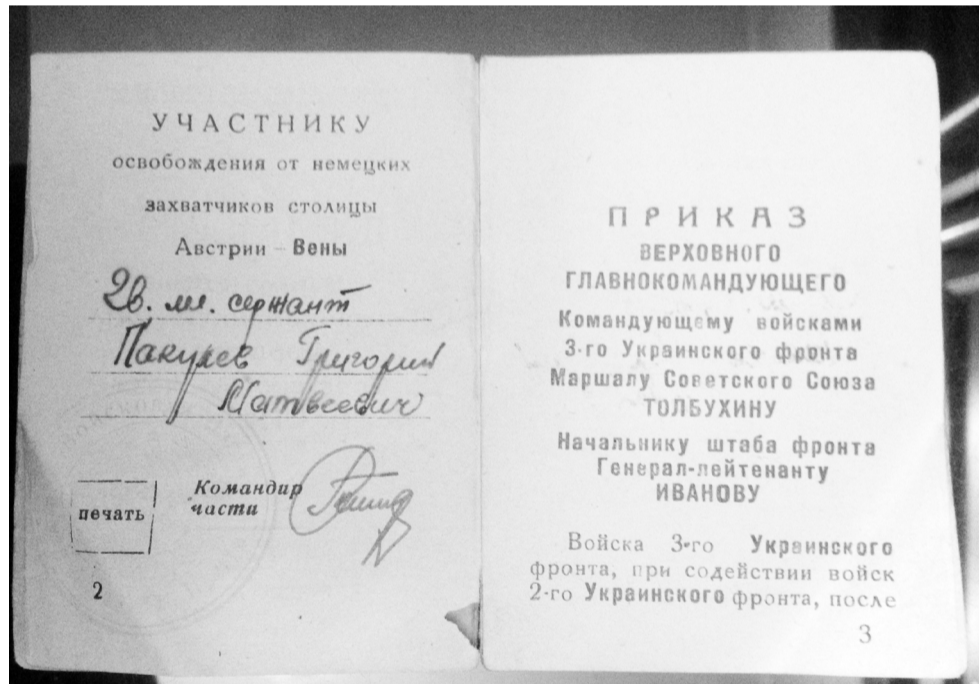 УЧАСТНИКУ
освобождения от немецких
захватчиков столицы
Австрии – Вены
Гв. мл. сержант
Пакулев Григорий
Матвеевич
Командир
части
печать
2
ПРИКАЗ
ВЕРХОВНОГО
ГЛАВНОКОМАНДУЮЩЕГО
Командующему войсками
3-го Украинского фронта
Маршалу Советского Союза
ТОЛБУХИНУ
Начальнику штаба фронта
Генерал-лейтенанту
ИВАНОВУ
Войска 3-го Украинского
фронта, при содействии войск
2-го Украинского фронта, после
3